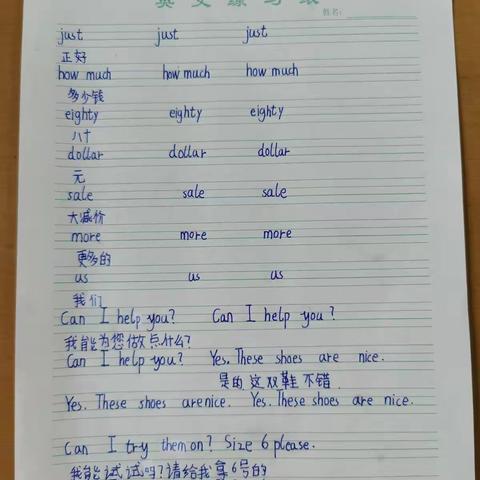 英文练习纸
姓名:
just just just
正好
how much how much how much
多少钱
eighty eighty eighty
八十
dollar dollar dollar
元
sale sale sale
大减价
more more more
更多的
us us us
我们
Can I help you? Can I help you?
我能为您做点什么?
Can I help you? Yes. These shoes are nice.
是的 这双鞋不错.
Yes. These shoes are nice. Yes. These shoes are nice.
Can I try them on? Size 6 please.
我能试试吗?请给我拿6号的